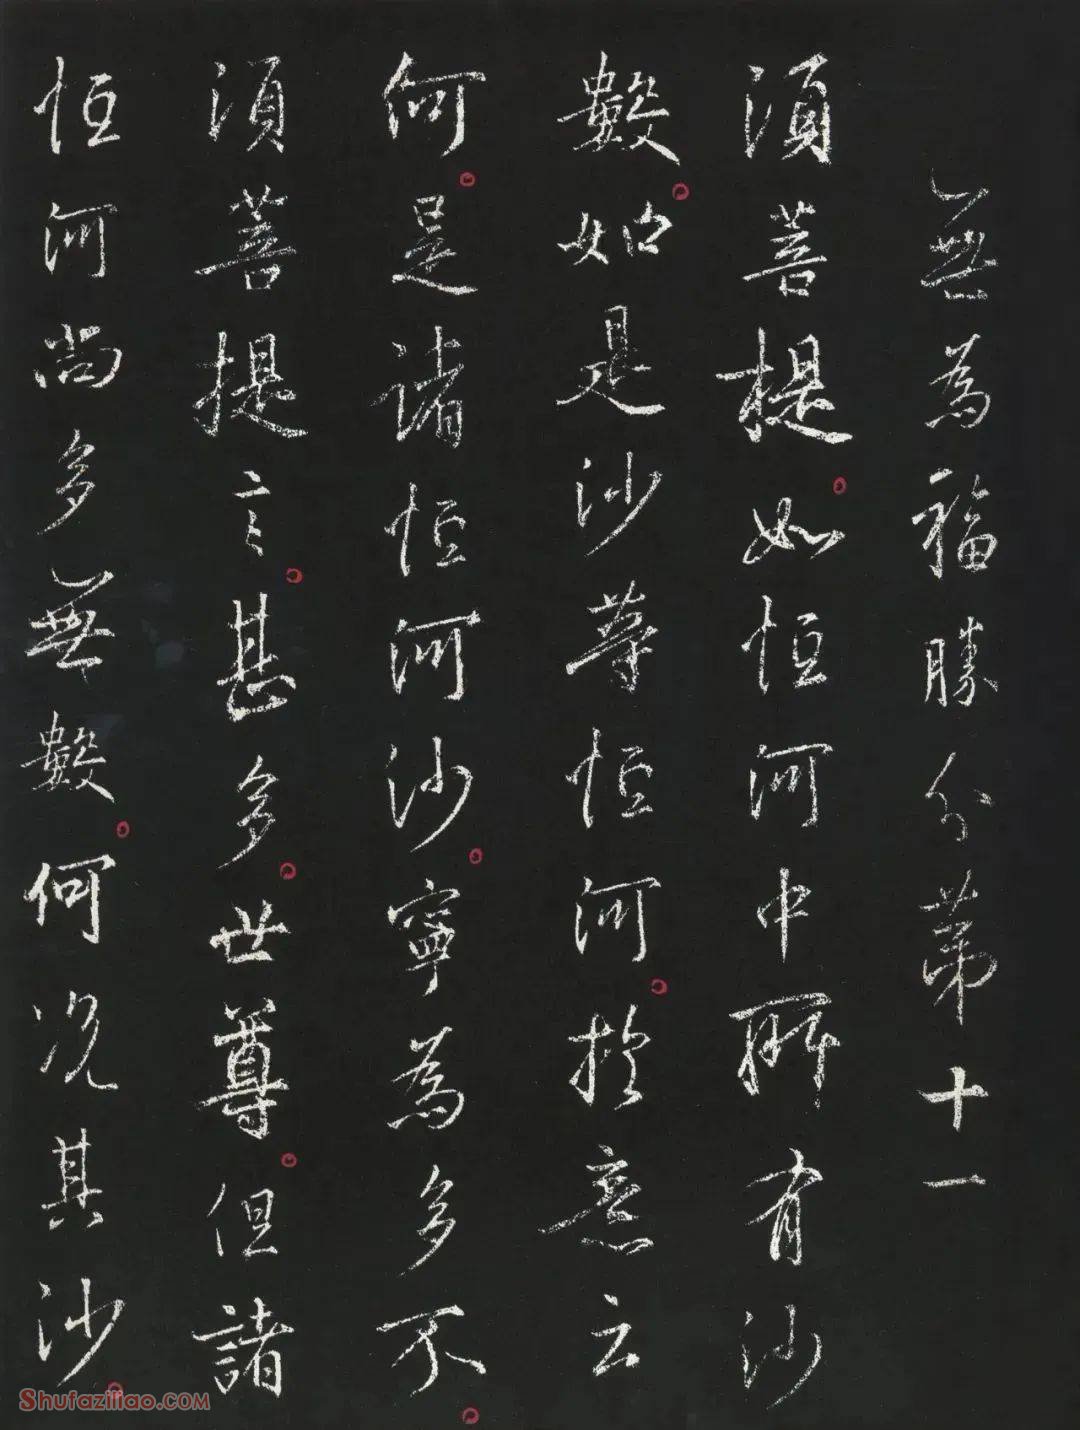 無為福勝分第十一
須菩提如恒河中所有沙
數如是沙等恒河於意云
何是諸恒河沙寧為多不
須菩提言甚多世尊但諸
恒河尚多無數何況其沙
Shufaziliao.COM